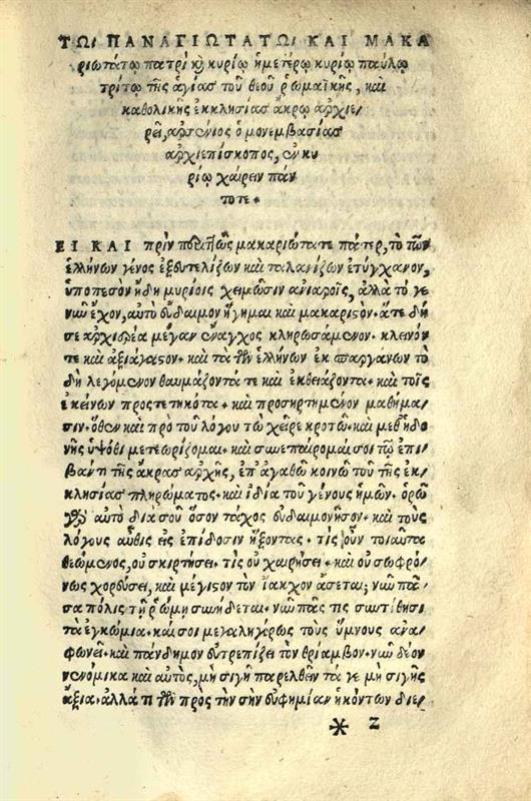 ΤΩι ΠΑΝΑΓΙΩΤΑΤΩι ΚΑΙ ΜΑΚΑ
ριωτάτῳ πατρὶ κὶ κυρίῳ ἡμετέρῳ κυρίῳ παύλῳ
τρίτῳ τῆς ἁγίας τοῦ θεοῦ ῥωμαϊκῆς, καὶ
καθολικῆς ἐκκλησίας ἄκρῳ ἀρχιε/
ρεῖ, ἀρσένιος ὁ μονεμβασίας
ἀρχιεπίσκοπος, ἐν κυ
ρίῳ χαίρειν πάν
τοτε.
ΕΙ ΚΑΙ πρὶν μακαριώτατε πάτερ, τὸ τῶν
ἑλλήνων γένος ἐξουτελίζων καὶ ταλανίζων ἐτύγχανον,
ὑποπεσὸν ἤδη μυρίοις χειμῶσιν ἀνιαροῖς, ἀλλὰ τό γε
νῦν ἔχον, αὐτὸ εὔδαιμον ἥγημαι καὶ μακαριστόν. ἅτε δή
σε ἀρχιερέα μέγαν ἔναγχος κληρωσάμενον. κλεινόν
τε καὶ ἀξιάγαστον. καὶ τὰ τῶν ἑλλήνων ἐκ σπαργάνων τὸ
δὴ λεγόμενον θαυμάζοντά τε καὶ ἐκθειάζοντα. καὶ τοῖς
ἐκείνων προστετηκότα. καὶ προσηρτημένον μαθήμα/
σιν. ὅθεν καὶ πρὸ τοῦ λόγου τὼ χεῖρε κροτῶ. καὶ μεθ' ἡδο
νῆς ὑψόθι μετεωρίζομαι. καὶ συνεπαίρομαί σοι τῷ ἐπι/
βάντι τῆς ἄκρας ἀρχῆς, ἐπ' ἀγαθῷ κοινῷ τοῦ τῆς ἐκ/
κλησίας πληρώματος. καὶ ἰδίᾳ τοῦ γένους ἡμῶν. ὁρῶ
γὰρ αὐτὸ διὰ σοῦ ὅσον τάχος εὐδαιμονῆσον. καὶ τοὺς
λόγους αὖθις εἰς ἐπίδοσιν ἥξοντας. τίς οὖν τοιαῦτα
θεώμενος, οὐ σκιρτήσει. τίς οὐ χαιρήσει. καὶ οὐ σωφρό/
νως χορεύσει, καὶ μέγιστον τὸν ἴακχον ἄσεται; νῦν πᾶ/
σα πόλις τῇ ῥώμῃ συνήδεται. νῦν πᾶς τις συντίθησι
τὰ ἐγκώμια. καί σοι μεγαληγόρως τοὺς ὕμνους ἀνα/
φωνεῖ. καὶ πάνδημον εὐτρεπίζει τὸν θρίαμβον. νῦν δέον
νενόμικα καὶ αὐτὸς, μὴ σιγῇ παρελθεῖν τά γε μὴ σιγῆς
ἄξια. ἀλλά τι τῶν πρὸς τὴν σὴν εὐφημίαν ἡκόντων διε/
* 2